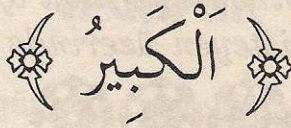 اَلْكَبِيرُ